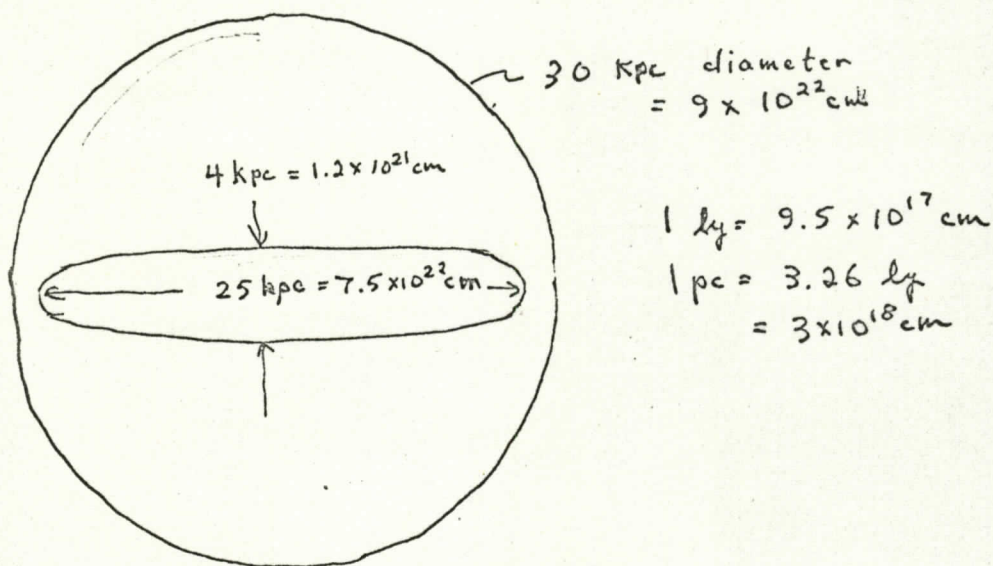 30 Kpc diameter
= 9 x 10²² cm
4 kpc = 1.2 x 10²¹ cm
25 kpc = 7.5 x 10²² cm
1 ly = 9.5 x 10¹⁷ cm
1 pc = 3.26 ly
= 3 x 10¹⁸ cm